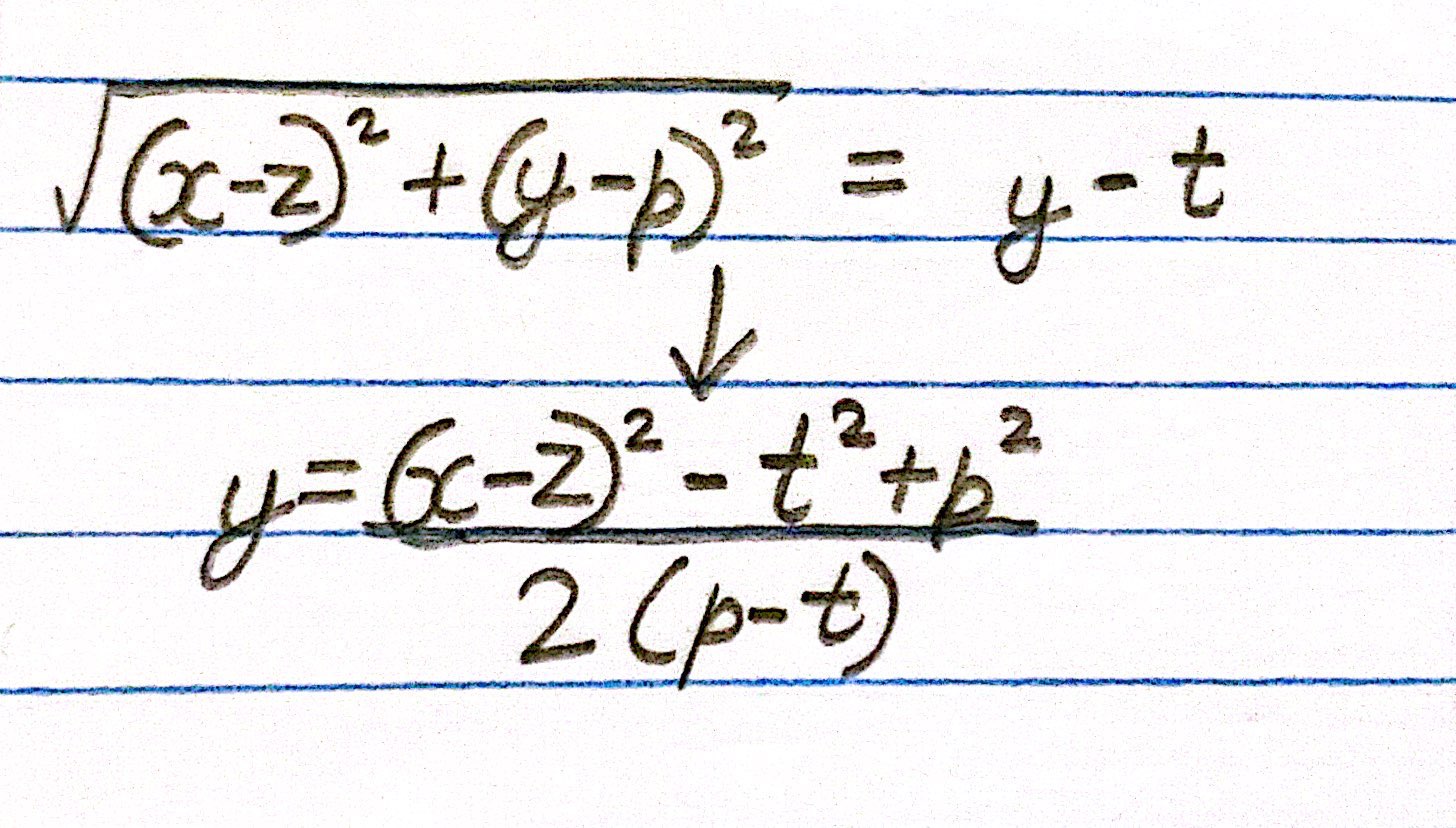 √((x-z)² + (y-p)²) = y - t
↓
y = ((x-z)² - t² + p²) / (2(p-t))